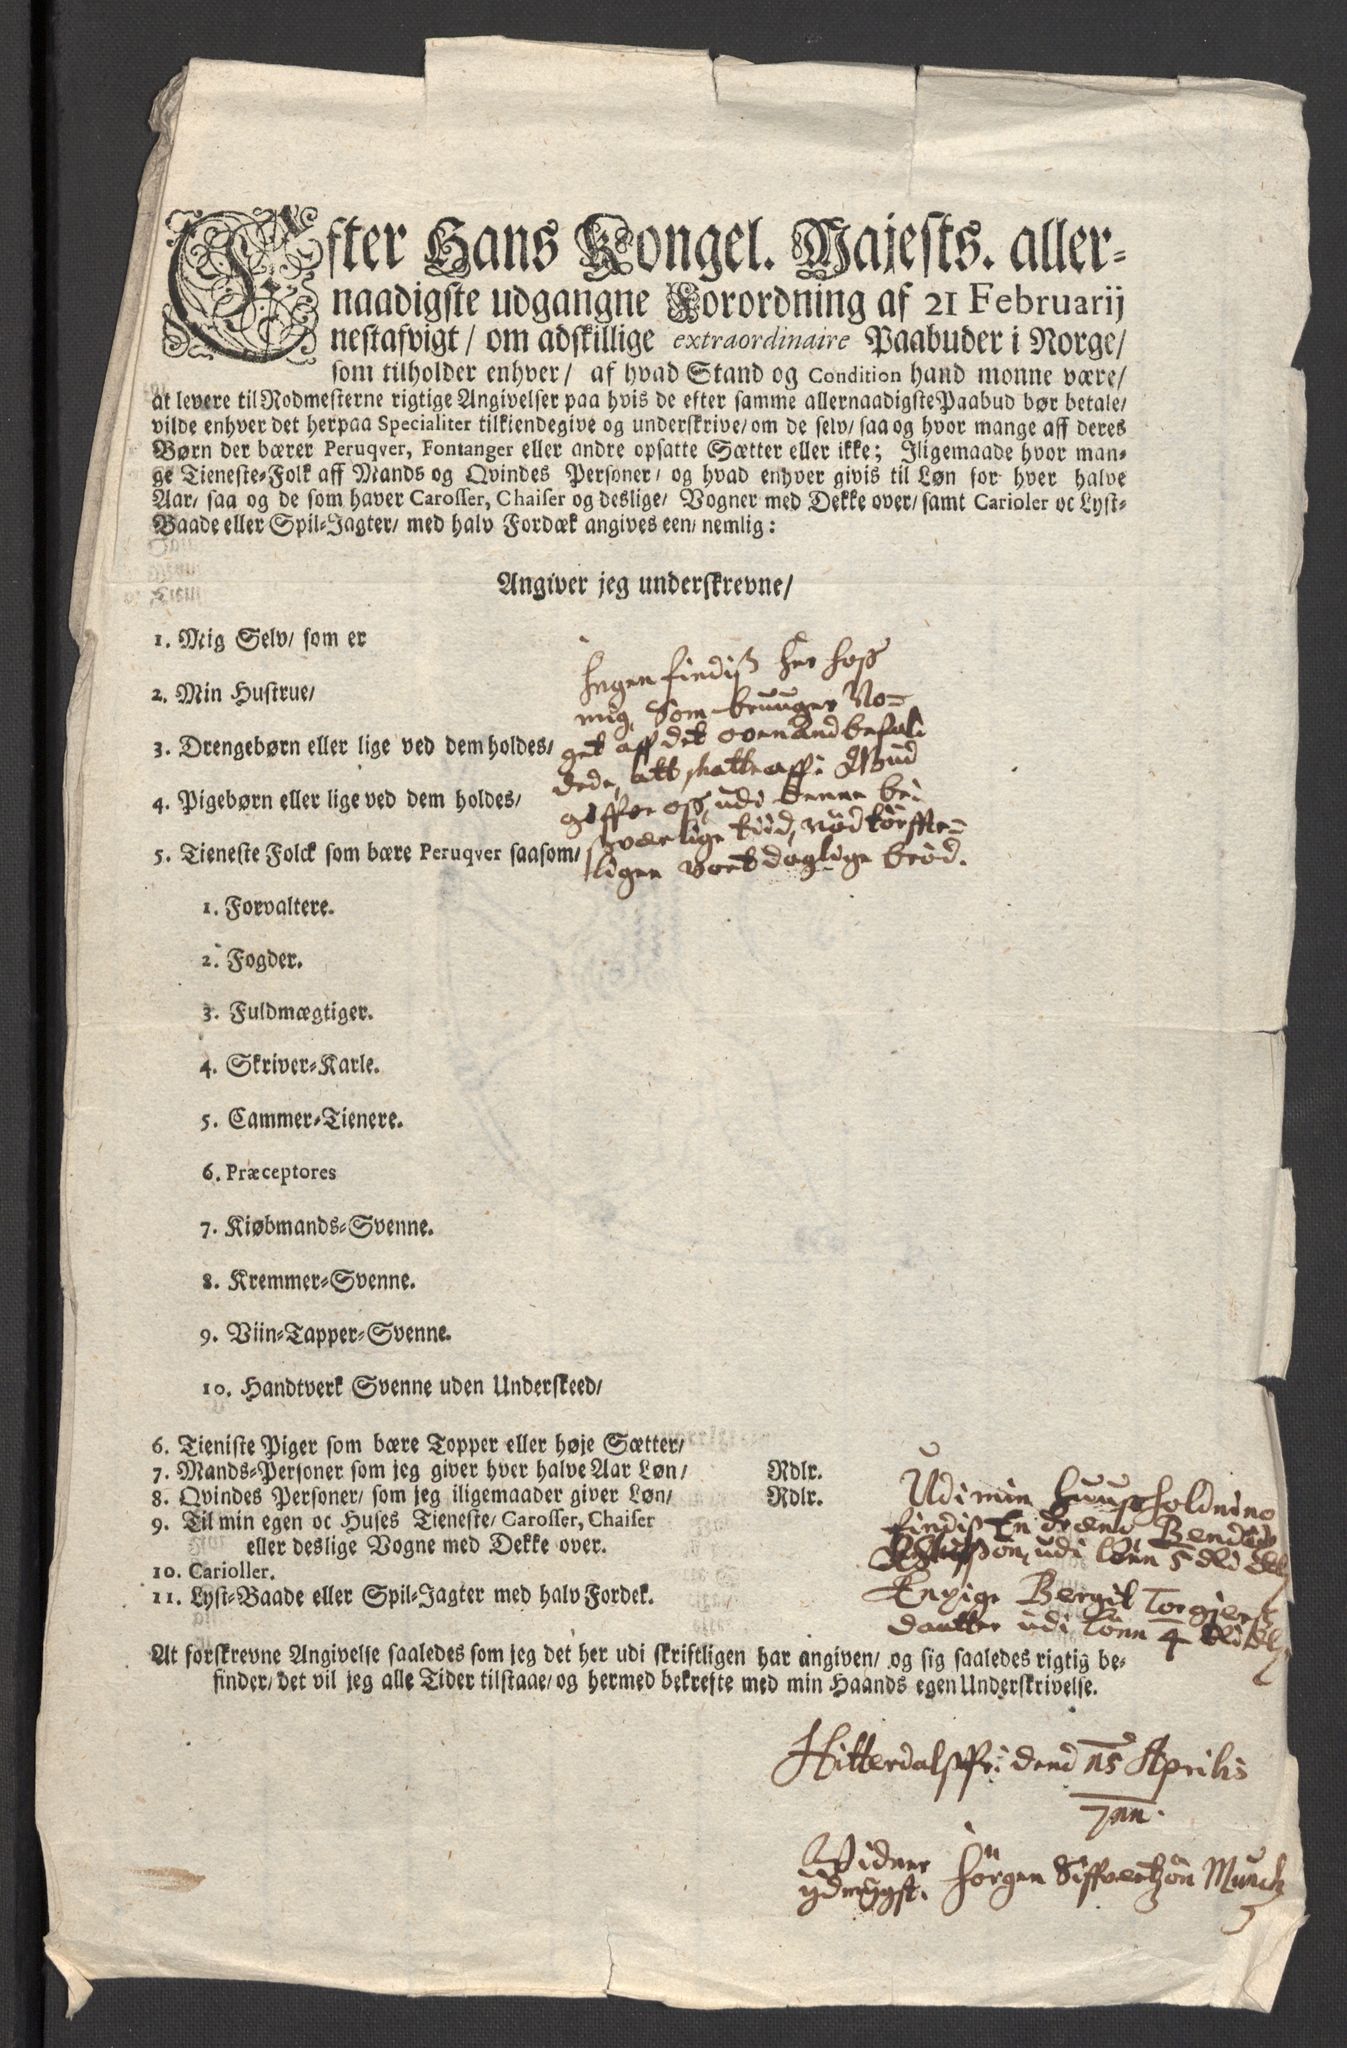 Efter Hans Kongel. Majests. aller-
naadigste udgangne Forordning af 21 Februarij
nestafvigt/ om adskillige extraordinaire Paabuder i Norge/
som tilholder enhver/ af hvad Stand og Condition hand monne være/
at levere til Rodmesterne rigtige Angivelser paa hvis de efter samme allernaadigste Paabud bør betale/
vilde enhver det herpaa Specialiter tilkiendegive og underskrive/ om de selv/ saa og hvor mange aff deres
Børn der bærer Peruqver, Fontanger eller andre opsatte Sætter eller ikke; Iligemaade hvor man-
ge Tieneste-Folk aff Mands og Qvindes Personer/ og hvad enhver givis til Løn for hver halve
Aar/ saa og de som haver Carosser, Chaiser og deslige/ Vogner med Dekke over/ samt Carioler oc Lyst-
Baade eller Spil-Jagter/ med halv Fordæk angives een/ nemlig:
Angiver jeg underskrevne/
1. Mig Selv/ som er
2. Min Hustrue/
3. Drengebørn eller lige ved dem holdes/
4. Pigebørn eller lige ved dem holdes/
5. Tieneste Folck som bære Peruqver saasom/
Ingen findiß her hoß
mig, Som bruuger No-
get aff det ovenandbefali
dede, att skatte aff: Gud
giffve oß, udi denne be
sværlige tiid, nødtørffte-
ligen vort daglige brød.
1. Forvaltere.
2. Fogder.
3. Fuldmægtiger.
4. Skriver-Karle.
5. Cammer-Tienere.
6. Præceptores
7. Kiøbmands-Svenne.
8. Kremmer-Svenne.
9. Viin-Tapper-Svenne.
10. Handtverk Svenne uden Underskeed/
6. Tieniste Piger som bære Topper eller høje Sætter/
7. Mands-Personer som jeg giver hver halve Aar Løn/ Rdlr.
8. Qvindes Personer/ som jeg iligemaader giver Løn/ Rdlr.
9. Til min egen oc Huses Tieneste/ Carosser, Chaiser
eller deslige Vogne med Dekke over.
10. Carioller.
11. Lyst-Baade eller Spil-Jagter med halv Fordek.
Udi min huußholdning
findiß En dreng
udi lönn 5
En pige Bergit Torgiers
daatter udi lönn 4
At forskrevne Angivelse saaledes som jeg det her udi skriftligen har angiven/ og sig saaledes rigtig be-
finder/ det vil jeg alle Tider tilstaae/ og hermed bekrefte med min Haands egen Underskrivelse.
Hitterdals dend 15 Aprilis
1711.
Vidner
ydmygst. Jörgen Siffvertzön Munck